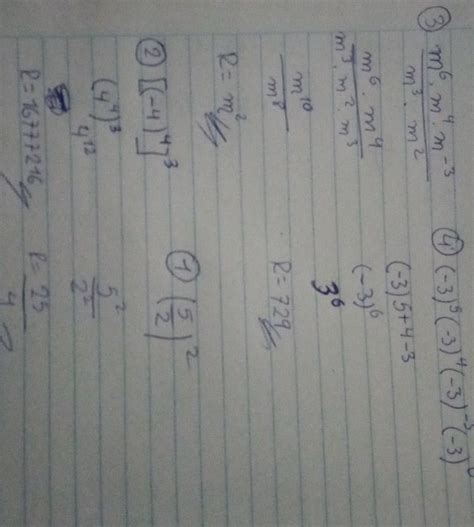 ③ m⁶ · m⁴ · m⁻³
m³ · m²
m⁶ · m⁴
m³ · m² · m³
m¹⁰
m⁸
R = m²
② [(-4)⁴]³
(4⁴)³
4¹²
R = 16777216
④ (-3)⁵ (-3)⁴ (-3)⁻³ (-3)⁰
(-3)5+4-3
(-3)⁶
3⁶
R = 729
① (5/2)²
5²
2²
R = 25
4